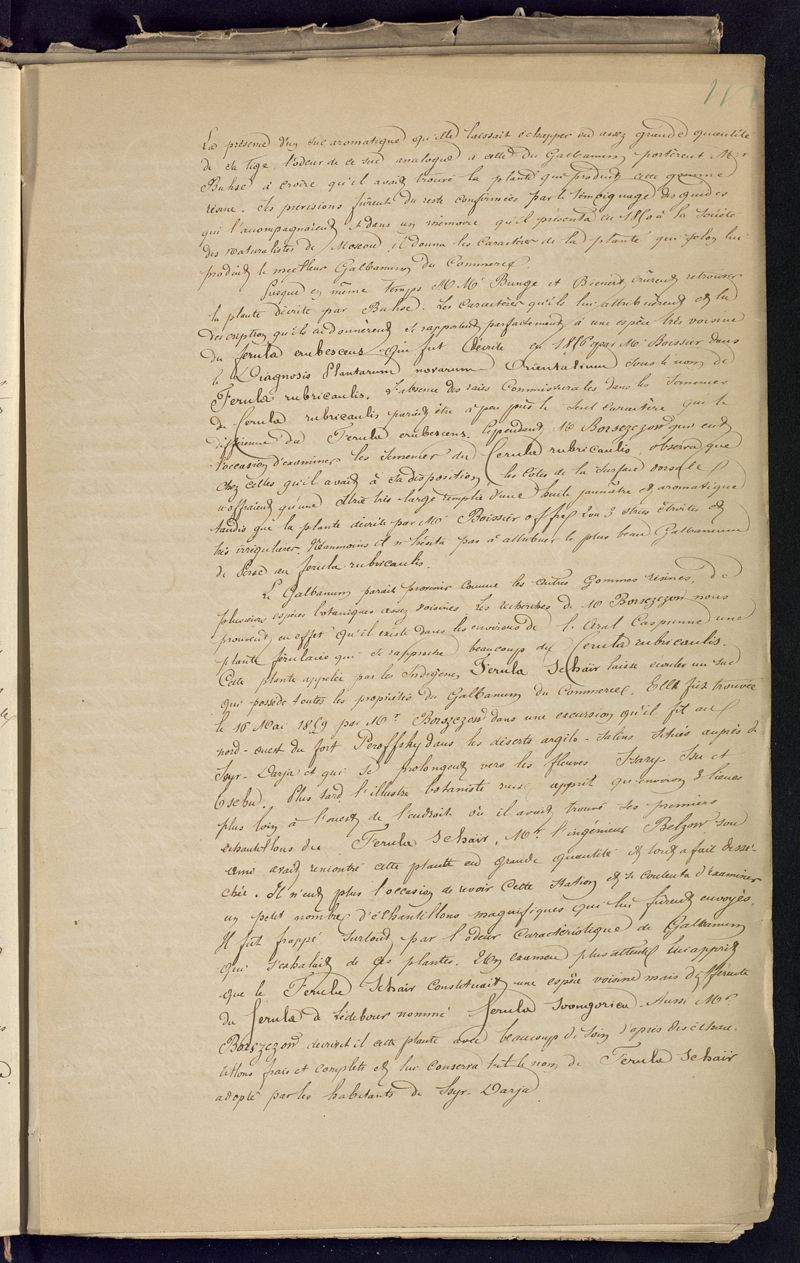 11
La présence d'un suc aromatique qu'elle laissait échapper en assez grande quantité
de sa tige, l'odeur de ce suc analogue à celle du Galbanum portèrent Mr
Buhse à croire qu'il avait trouvé la plante qui produit cette gomme
résine. Ses prévisions furent du reste confirmées par le témoignage des guides
qui l'accompagnaient et dans un mémoire qu'il présenta en 1850 à la Société
des Naturalistes de Moscou, il donna les caractères de la plante qui selon lui
produit le meilleur Galbanum du Commerce.
Presque en même temps M.Mrs Bunge et Bienert crurent retrouver
la plante décrite par Buhse. Les caractères qu'ils lui attribuèrent et la
description qu'ils en donnèrent se rapportent parfaitement à une espèce très voisine
du ferula erubescens qui fut décrite en 1846 par Mr Boissier dans
le Diagnosis Plantarum novarum Orientalium sous le nom de
Ferula rubricaulis. L'absence des raies commissurales dans les semences
du ferula rubricaulis paraît être à peu près le seul caractère qui le
différencie du Ferula erubescens. Cependant Mr Borszczow qui eut
l'occasion d'examiner les semences du ferula rubricaulis, observa que
chez celles qu'il avait à sa disposition les côtes de la surface dorsale
n'offraient qu'une strie très large remplie d'une huile jaunâtre et aromatique
tandis que la plante décrite par Mr Boissier offre 2 ou 3 stries étroites et
très irrégulières. Néanmoins il n'hésita pas à attribuer le plus beau Galbanum
de Perse au ferula rubricaulis.
Le Galbanum paraît provenir comme les autres gommes résines, de
plusieurs espèces botaniques assez voisines. Les recherches de Mr Borszczow nous
prouvent en effet qu'il existe dans les environs de l'Aral Caspienne une
plante férulacée qui se rapproche beaucoup du ferula rubricaulis.
Cette plante appelée par les Indigènes Ferula Schair laisse écouler un suc
qui possède toutes les propriétés du Galbanum du Commerce. Elle fut trouvée
le 16 Mai 1859 par Mr Borszczow dans une excursion qu'il fit au
nord-ouest du fort Peroffsky dans les déserts argilo-salins situés auprès de
Syr-Darja et qui se prolongent vers les fleuves Ssary Ssu et
Plus tard l'illustre botaniste russe apprit qu'environ 8 lieues
plus loin à l'ouest de l'endroit où il avait trouvé ses premiers
échantillons de Ferula Schair, Mr l'ingénieur Belzow son
ami avait rencontré cette plante en grande quantité et tout à fait dessé-
chée. Il n'eut plus l'occasion de revoir cette station et se contenta d'examiner
un petit nombre d'échantillons magnifiques qui lui furent envoyés.
Il fut frappé surtout par l'odeur caractéristique de Galbanum
qui s'exhalait de ces plantes. Un examen plus attentif lui apprit
que le Ferula Schair constituait une espèce voisine mais différente
du ferula de Ledebour nommé ferula Soongorica. Aussi Mr
Borszczow décrivit il cette plante avec beaucoup de soin d'après des échan-
tillons frais et complets et lui conserva-t-il le nom de Ferula Schair
adopté par les habitants de Syr-Darja.